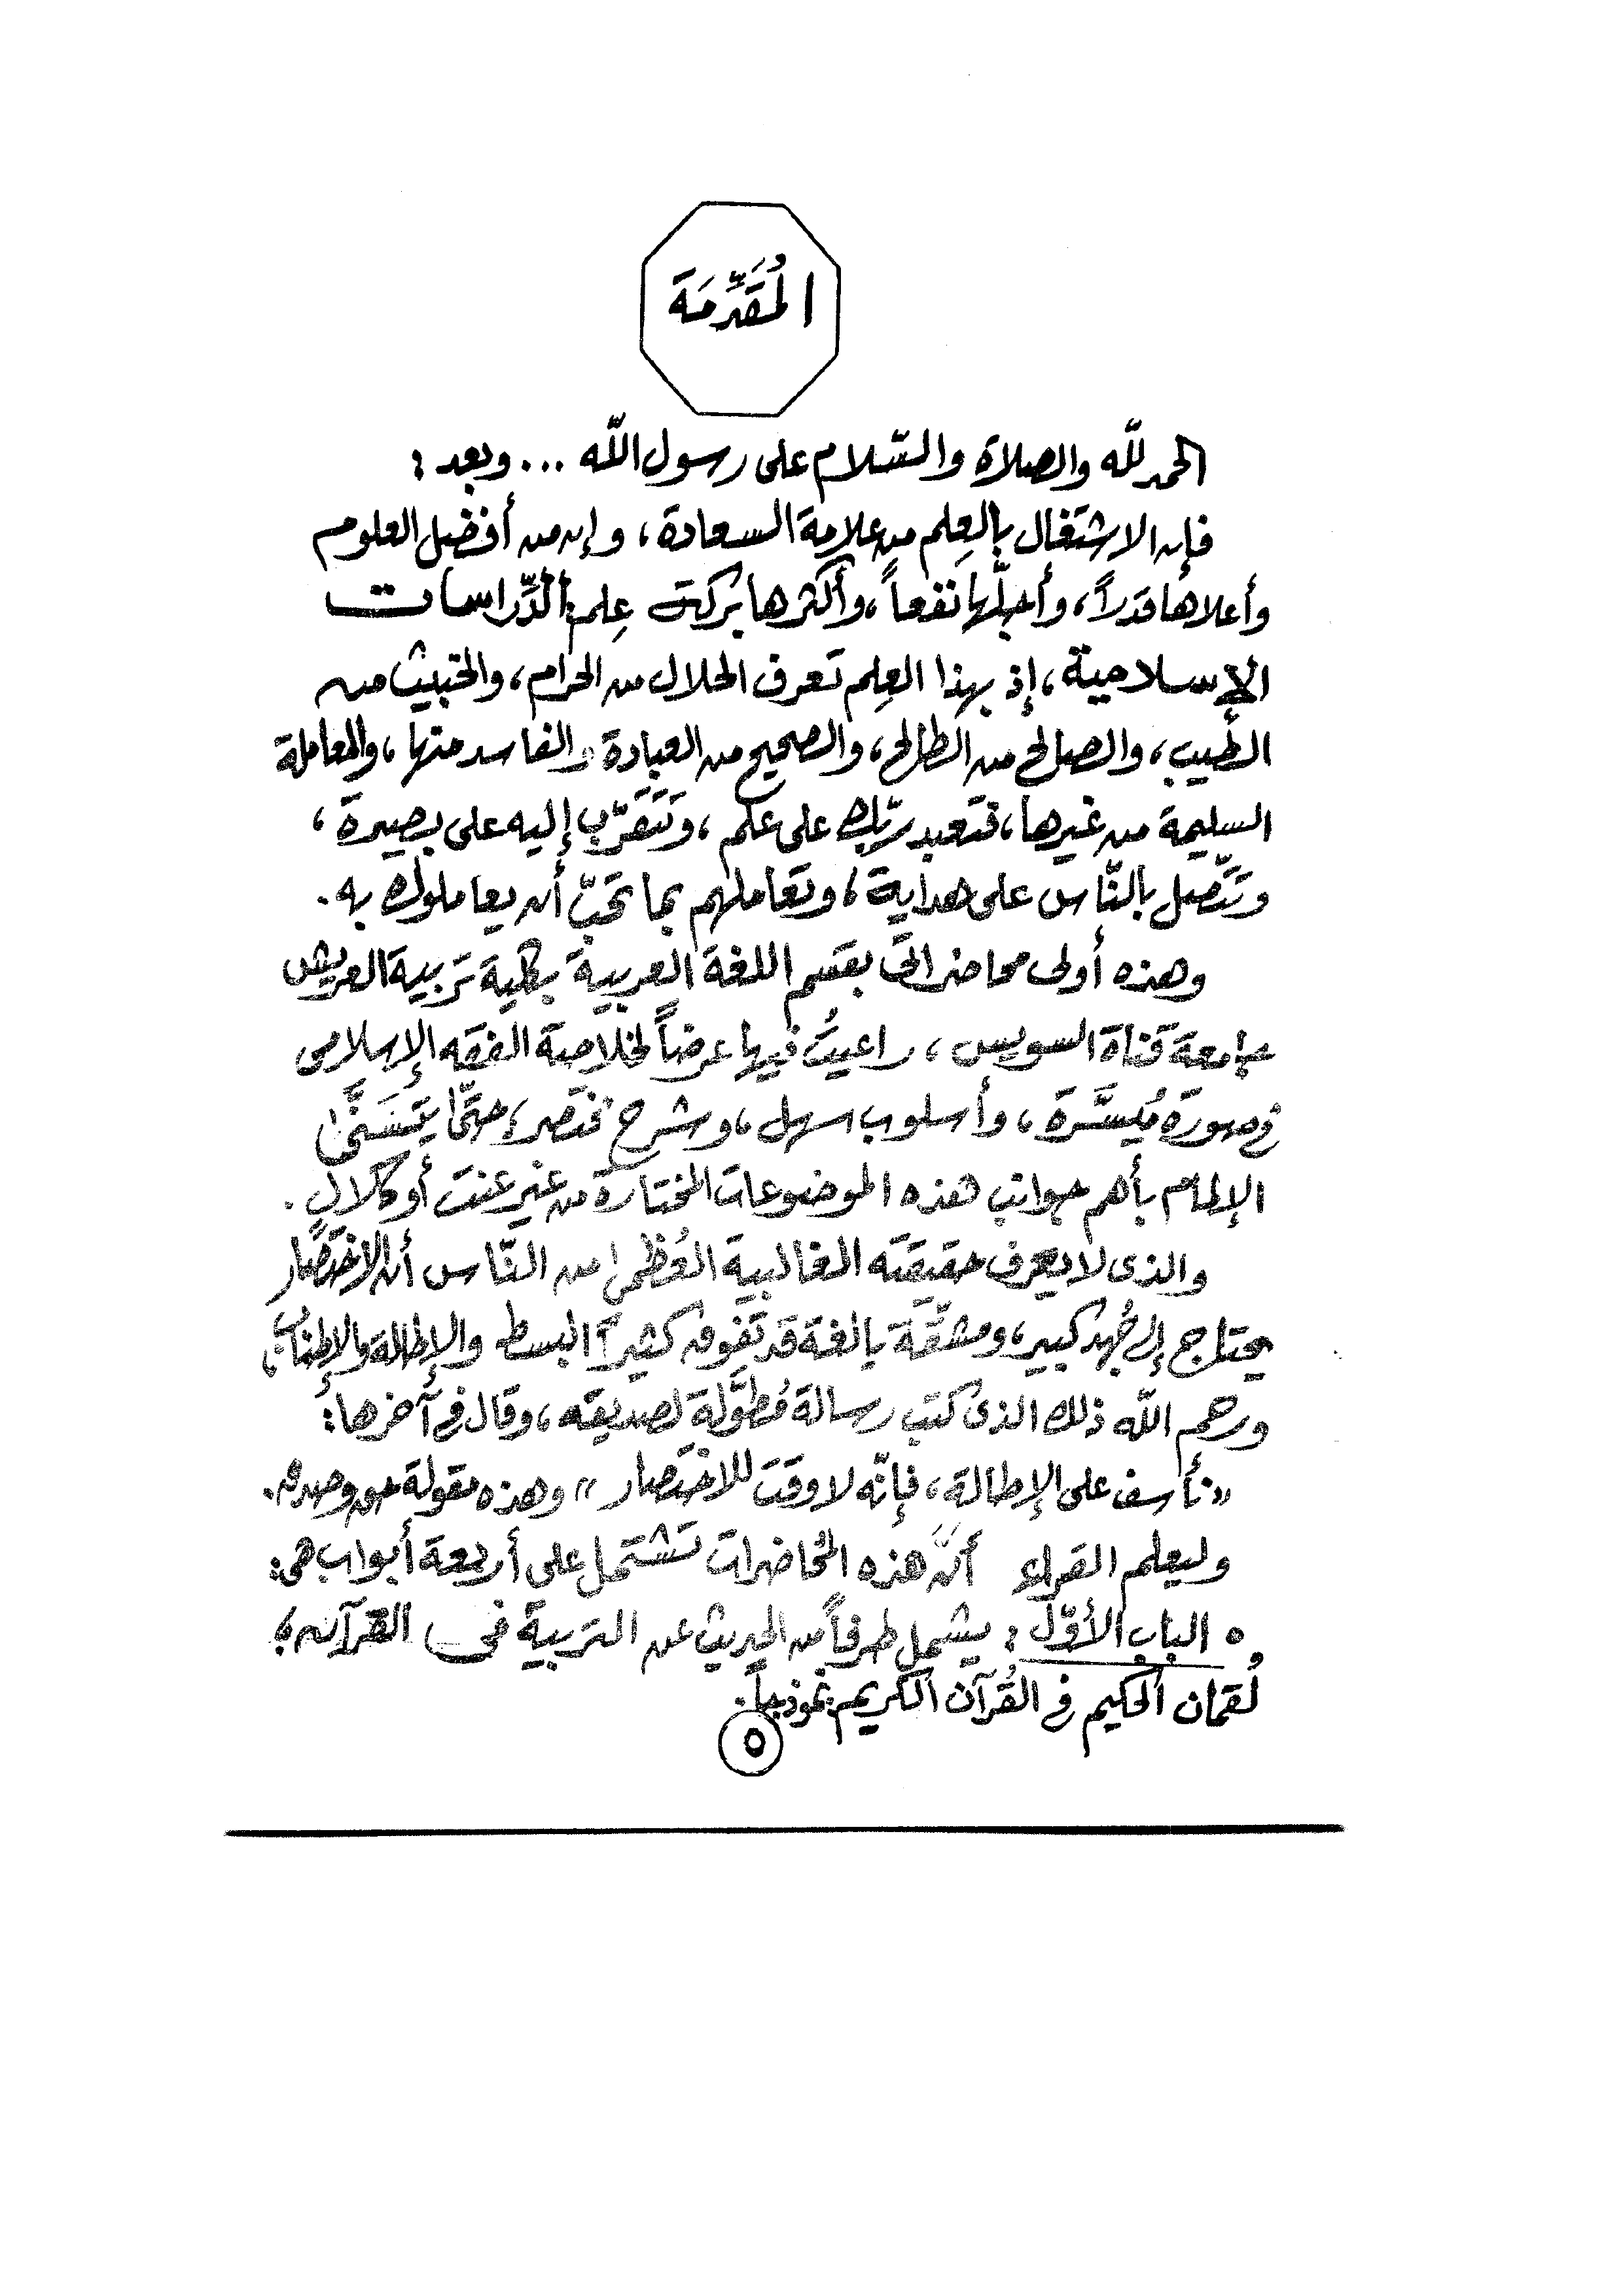 المُقَدِّمَة
الحمد لله والصلاة والسّلام على رسول الله ... وبعد :
فإن الاشتغال بالعِلم من علامة السعادة ، وإن من أفضل العلوم
وأعلاها قدراً ، وأجلّها نفعاً ، وأكثرها بركة عِلم الدِّراسات
الإسلامية ، إذ بهذا العِلم تعرف الحلال من الحرام ، والخبيث من
الطيب ، والصالح من الطالح ، والصحيح من العبادة والفاسد منها ، والمعاملة
السليمة من غيرها ، فتعبد ربّك على علم ، وتَتَقرّب إليه على بصيرة ،
وتتّصل بالنّاس على هداية ، وتعاملهم بما تحبّ أن يعاملوك به .
وهذه أولى محاضراتى بقسم اللغة العربية بكلية تربية العريش
جامعة قناة السويس ، راعيتُ فيها عرضاً لخلاصة الفقه الإسلامى
فى صورة مُيسَّرة ، وأسلوب سهل ، وشرح مختصر ، حتّى يَتَسَنَّى
الإلمام بأهم جوانب هذه الموضوعات المختارة من غير عنت أو كلال .
والذى لا يعرف حقيقته الغالبية العُظمى من النّاس أن الاختصار
يحتاج إلى جُهد كبير ، ومشقّة بالغة قد تفوق كثيراً البسط والإطالة والإطناب ،
ورحم الله ذلك الذى كتب رسالة مُطوَّلة لصديقه ، وقال فى آخرها :
« نأسف على الإطالة ، فإنّه لا وقت للاختصار » وهذه مقولة حق وصدق .
وليعلم القراء أنَّ هذه المحاضرات تشتمل على أربعة أبواب هى :
٥ الباب الأوّل : يشمل طرفاً من الحديث عن التربية فى القرآن ؛
لُقمان الحكيم فى القُرآن الكريم نموذجاً .
٥